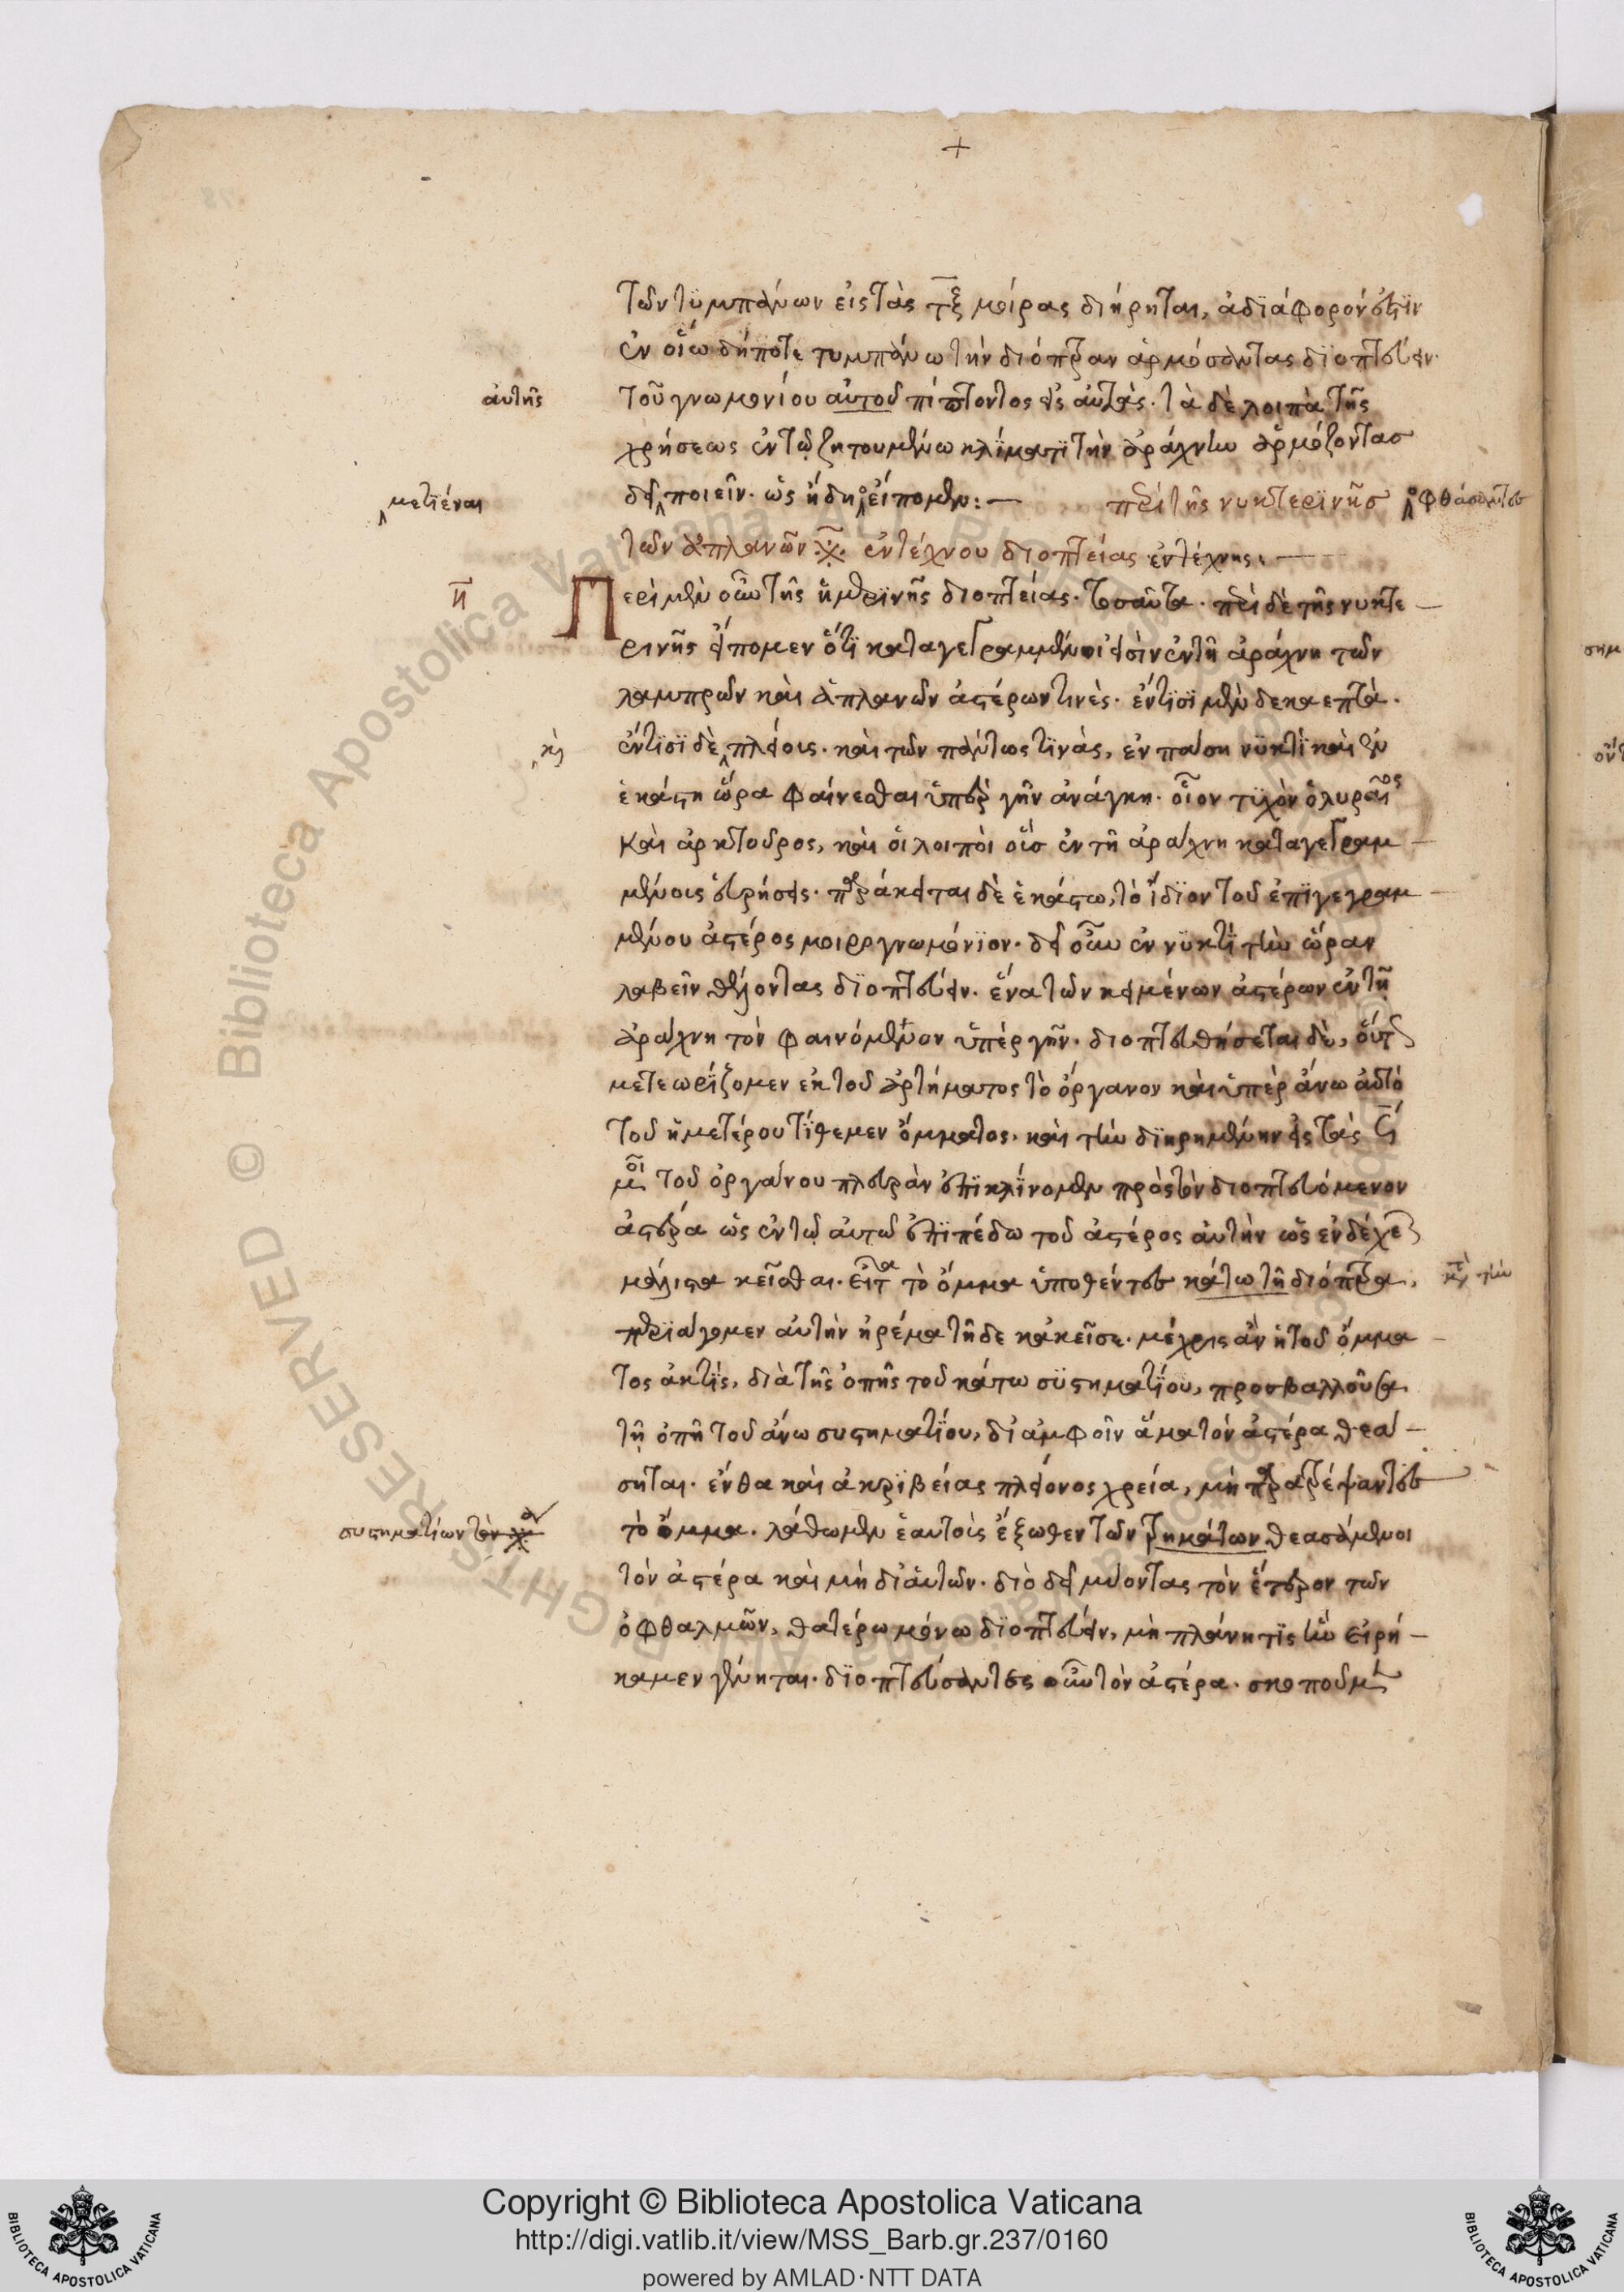 +
τῶν τυμπάνων εἰς τὰς τξ μοίρας διήρηται, ἀδιάφορόν ἐστιν
ἐν οἵω δήποτε τυμπάνω τὴν διόπτραν ἁρμόσαντας διοπτεύειν.
αὐτῆς
τοῦ γνωμονίου αὐτοῦ πίπτοντος εἰς αὐτάς. τὰ δὲ λοιπὰ τῆς
χρήσεως ἐν τῷ ζητουμένω κλίματι τὴν ἀράχνην ἁρμόζοντας
μετιέναι
δεῖ ποιεῖν. ὡς ἤδη εἴπομεν: — περὶ τῆς νυκτερινῆς
φθάσαντες
τῶν ἀπλανῶν ἐντέχνου διοπτείας ἐντέχνης: —
η
Περὶ μὲν οὖν τῆς ἡμερινῆς διοπτείας. τοσαῦτα. περὶ δὲ τῆς νυκτε
ρινῆς εἴπομεν ὅτι καταγεγραμμένοι εἰσὶν ἐν τῆ ἀράχνη τῶν
λαμπρῶν καὶ ἀπλανῶν ἀστέρων τινὲς. ἔν τισι μὲν δεκαεπτὰ.
κὶ
ἔν τισι δὲ πλείους. καὶ τῶν πάντως τινὰς, ἐν πάση νυκτὶ καὶ ἐν
ἑκάστη ὥρα φαίνεσθαι ὑπὲρ γῆν ἀνάγκη. οἷον τυχὸν ὁ λυραῖος
καὶ ἀρκτοῦρος, καὶ οἱ λοιποὶ οὓς ἐν τῆ ἀράχνη καταγεγραμ
μένους εὑρήσεις. παράκειται δὲ ἑκάστω, τὸ ἴδιον τοῦ ἐπιγεγραμ
μένου ἀστέρος μοιρογνωμόνιον. δεῖ οὖν ἐν νυκτὶ τὴν ὥραν
λαβεῖν θέλοντας διοπτεύειν. ἕνα τῶν κειμένων ἀστέρων ἐν τῆ
ἀράχνη τὸν φαινόμενον ὑπὲρ γῆν. διοπτευθήσεται δὲ, οὕτ
μετεωρίζομεν ἐκ τοῦ ἀρτήματος τὸ ὄργανον καὶ ὑπὲρ ἄνω αὐτὸ
τοῦ ἡμετέρου τίθεμεν ὄμματος. καὶ τὴν διηρημένην εἰς τὰς
μοι τοῦ ὀργάνου πλευρὰν ἐπικλίνομεν πρὸς τὸν διοπτευόμενον
ἀστέρα ὡς ἐν τῷ αὐτῶ ἐπιπέδω τοῦ ἀστέρος αὐτὴν ὡς ἐνδέχε
μάλιστα κεῖσθαι. εἶτα τὸ ὄμμα ὑποθέντες κάτω τῆ διόπτρα,
περιάγομεν αὐτὴν ἠρέμα τῆδε κἀκεῖσε. μέχρις ἂν ἡ τοῦ ὄμμα
τος ἀκτὶς, διὰ τῆς ὀπῆς τοῦ κάτω συστηματίου, προσβαλλοῦσα
τῆ ὀπῆ τοῦ ἄνω συστηματίου, δι ἀμφοῖν ἅμα τὸν ἀστέρα θεά
σηται. ἔνθα καὶ ἀκριβείας πλείονος χρεία, μὴ παρατρέψαντες
συστηματίων τὸν
τὸ ὄμμα. λάθωμεν ἑαυτοὺς ἔξωθεν τῶν τρημάτων θεασάμενοι
τὸν ἀστέρα καὶ μὴ δι αὐτῶν. διὸ δεῖ μύοντας τὸν ἕτερον τῶν
ὀφθαλμῶν, θατέρω μόνω διοπτεύειν, μὴ πλάνη τις ἣν εἰρή
καμεν γένηται. διοπτεύσαντες οὖν τὸν ἀστέρα. σκοποῦμεν
Copyright © Biblioteca Apostolica Vaticana
http://digi.vatlib.it/view/MSS_Barb.gr.237/0160
powered by AMLAD·NTT DATA